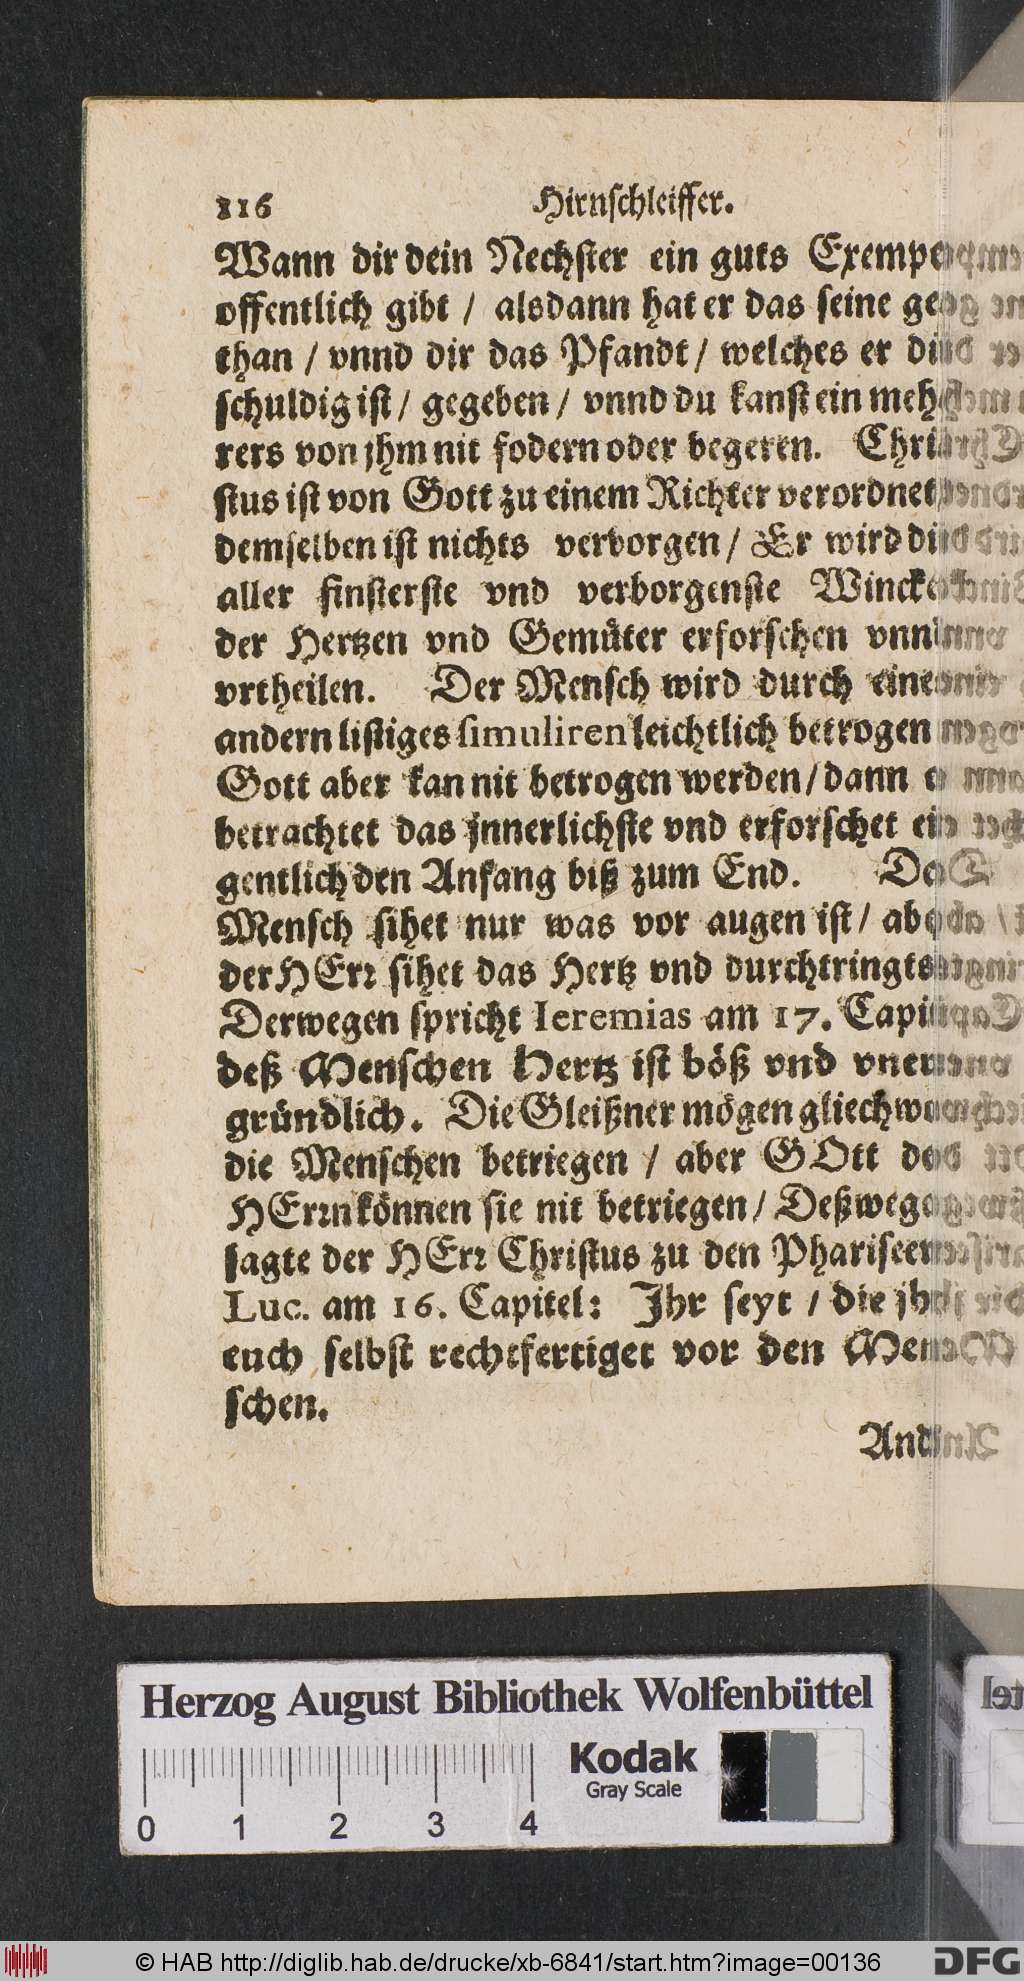 116 Hirnschleiffer.
Wann dir dein Nechster ein guts Exempel
offentlich gibt / alsdann hat er das seine ge-
than / vnnd dir das Pfandt / welches er dir
schuldig ist / gegeben / vnnd du kanst ein meh-
rers von jhm nit fodern oder begeren. Chri-
stus ist von Gott zu einem Richter verordnet
demselben ist nichts verborgen / Er wird die
aller finsterste vnd verborgenste Winckel
der Hertzen vnd Gemüter erforschen vnnd
vrtheilen. Der Mensch wird durch eines
andern listiges simuliren leichtlich betrogen
Gott aber kan nit betrogen werden / dann er
betrachtet das jnnerlichste vnd erforschet ei-
gentlich den Anfang biß zum End. Der
Mensch sihet nur was vor augen ist / aber
der HErr sihet das Hertz vnd durchtringts
Derwegen spricht Ieremias am 17. Capit
deß Menschen Hertz ist böß vnd vner-
gründlich. Die Gleißner mögen gliechwol
die Menschen betriegen / aber GOtt den
HErrn können sie nit betriegen / Deßwegen
sagte der HErr Christus zu den Phariseern
Luc. am 16. Capitel: Jhr seyt / die jhr
euch selbst rechtfertiget vor den Men-
schen.
And
Herzog August Bibliothek Wolfenbüttel
Kodak
Gray Scale
0 1 2 3 4
© HAB http://diglib.hab.de/drucke/xb-6841/start.htm?image=00136
DFG